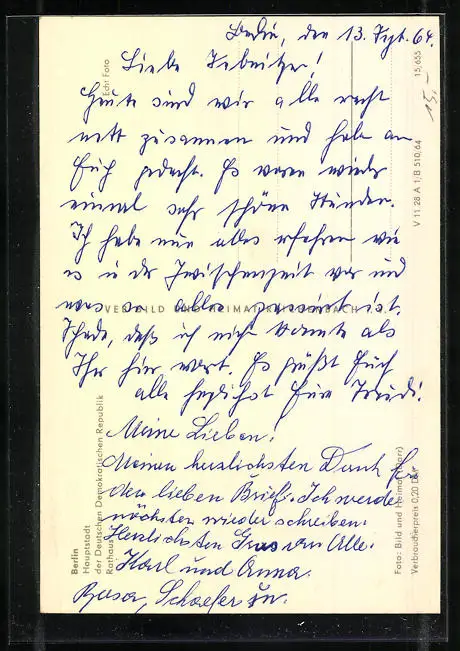 Berlin, den 13. Sept. 64.
Liebe Sebnitzer!
Heute sind wir alle recht
nett zusammen und habe an
Euch gedacht. Es waren wieder
einmal sehr schöne Stunden.
Ich habe nun alles erfahren wie
es in der Zwischenzeit war und
was so alles passiert ist.
Schade, daß ich nicht konnte als
Ihr hier wart. Es grüßt Euch
alle herzlichst Eure Trudi.
Meine Lieben!
Meinen herzlichsten Dank für
den lieben Brief. Ich werde
nächsten wieder schreiben.
Herzlichsten Gruss an Alle.
Karl und Anna.
Rosa, Schaefer
Echt Foto
15,655
15.-
V 11 28 A 1/B 510/64
VEB BILD UND HEIMAT REICHENBACH I. V.
Berlin
Hauptstadt
der Deutschen Demokratischen Republik
Rathaus
Foto: Bild und Heimat (Darr)
Verbraucherpreis 0,20 DM